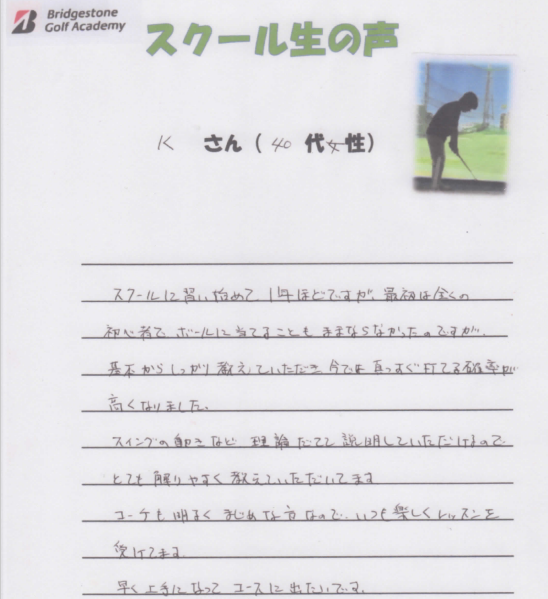 Bridgestone
Golf Academy
スクール生の声
K さん ( 40 代女性)
スクールに習い始めて、1年ほどですが、最初は全くの
初心者で ボールに当てることも ままならなかったのですが、
基本からしっかり教えていただき今では真っすぐ打てる確率が
高くなりました。
スイングの動きなど 理論だてて 説明していただけるので
とても 解りやすく 教えていただいてます
コーチも明るく まじめな方なので、いつも楽しくレッスンを
受けてます。
早く上手になって コースに出たいです。